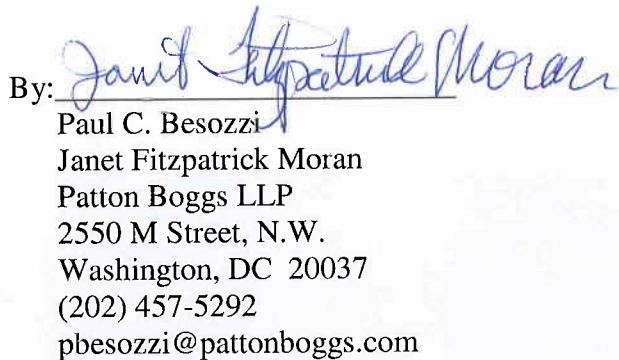 By: Janet Fitzpatrick Moran
Paul C. Besozzi
Janet Fitzpatrick Moran
Patton Boggs LLP
2550 M Street, N.W.
Washington, DC 20037
(202) 457-5292
pbesozzi@pattonboggs.com